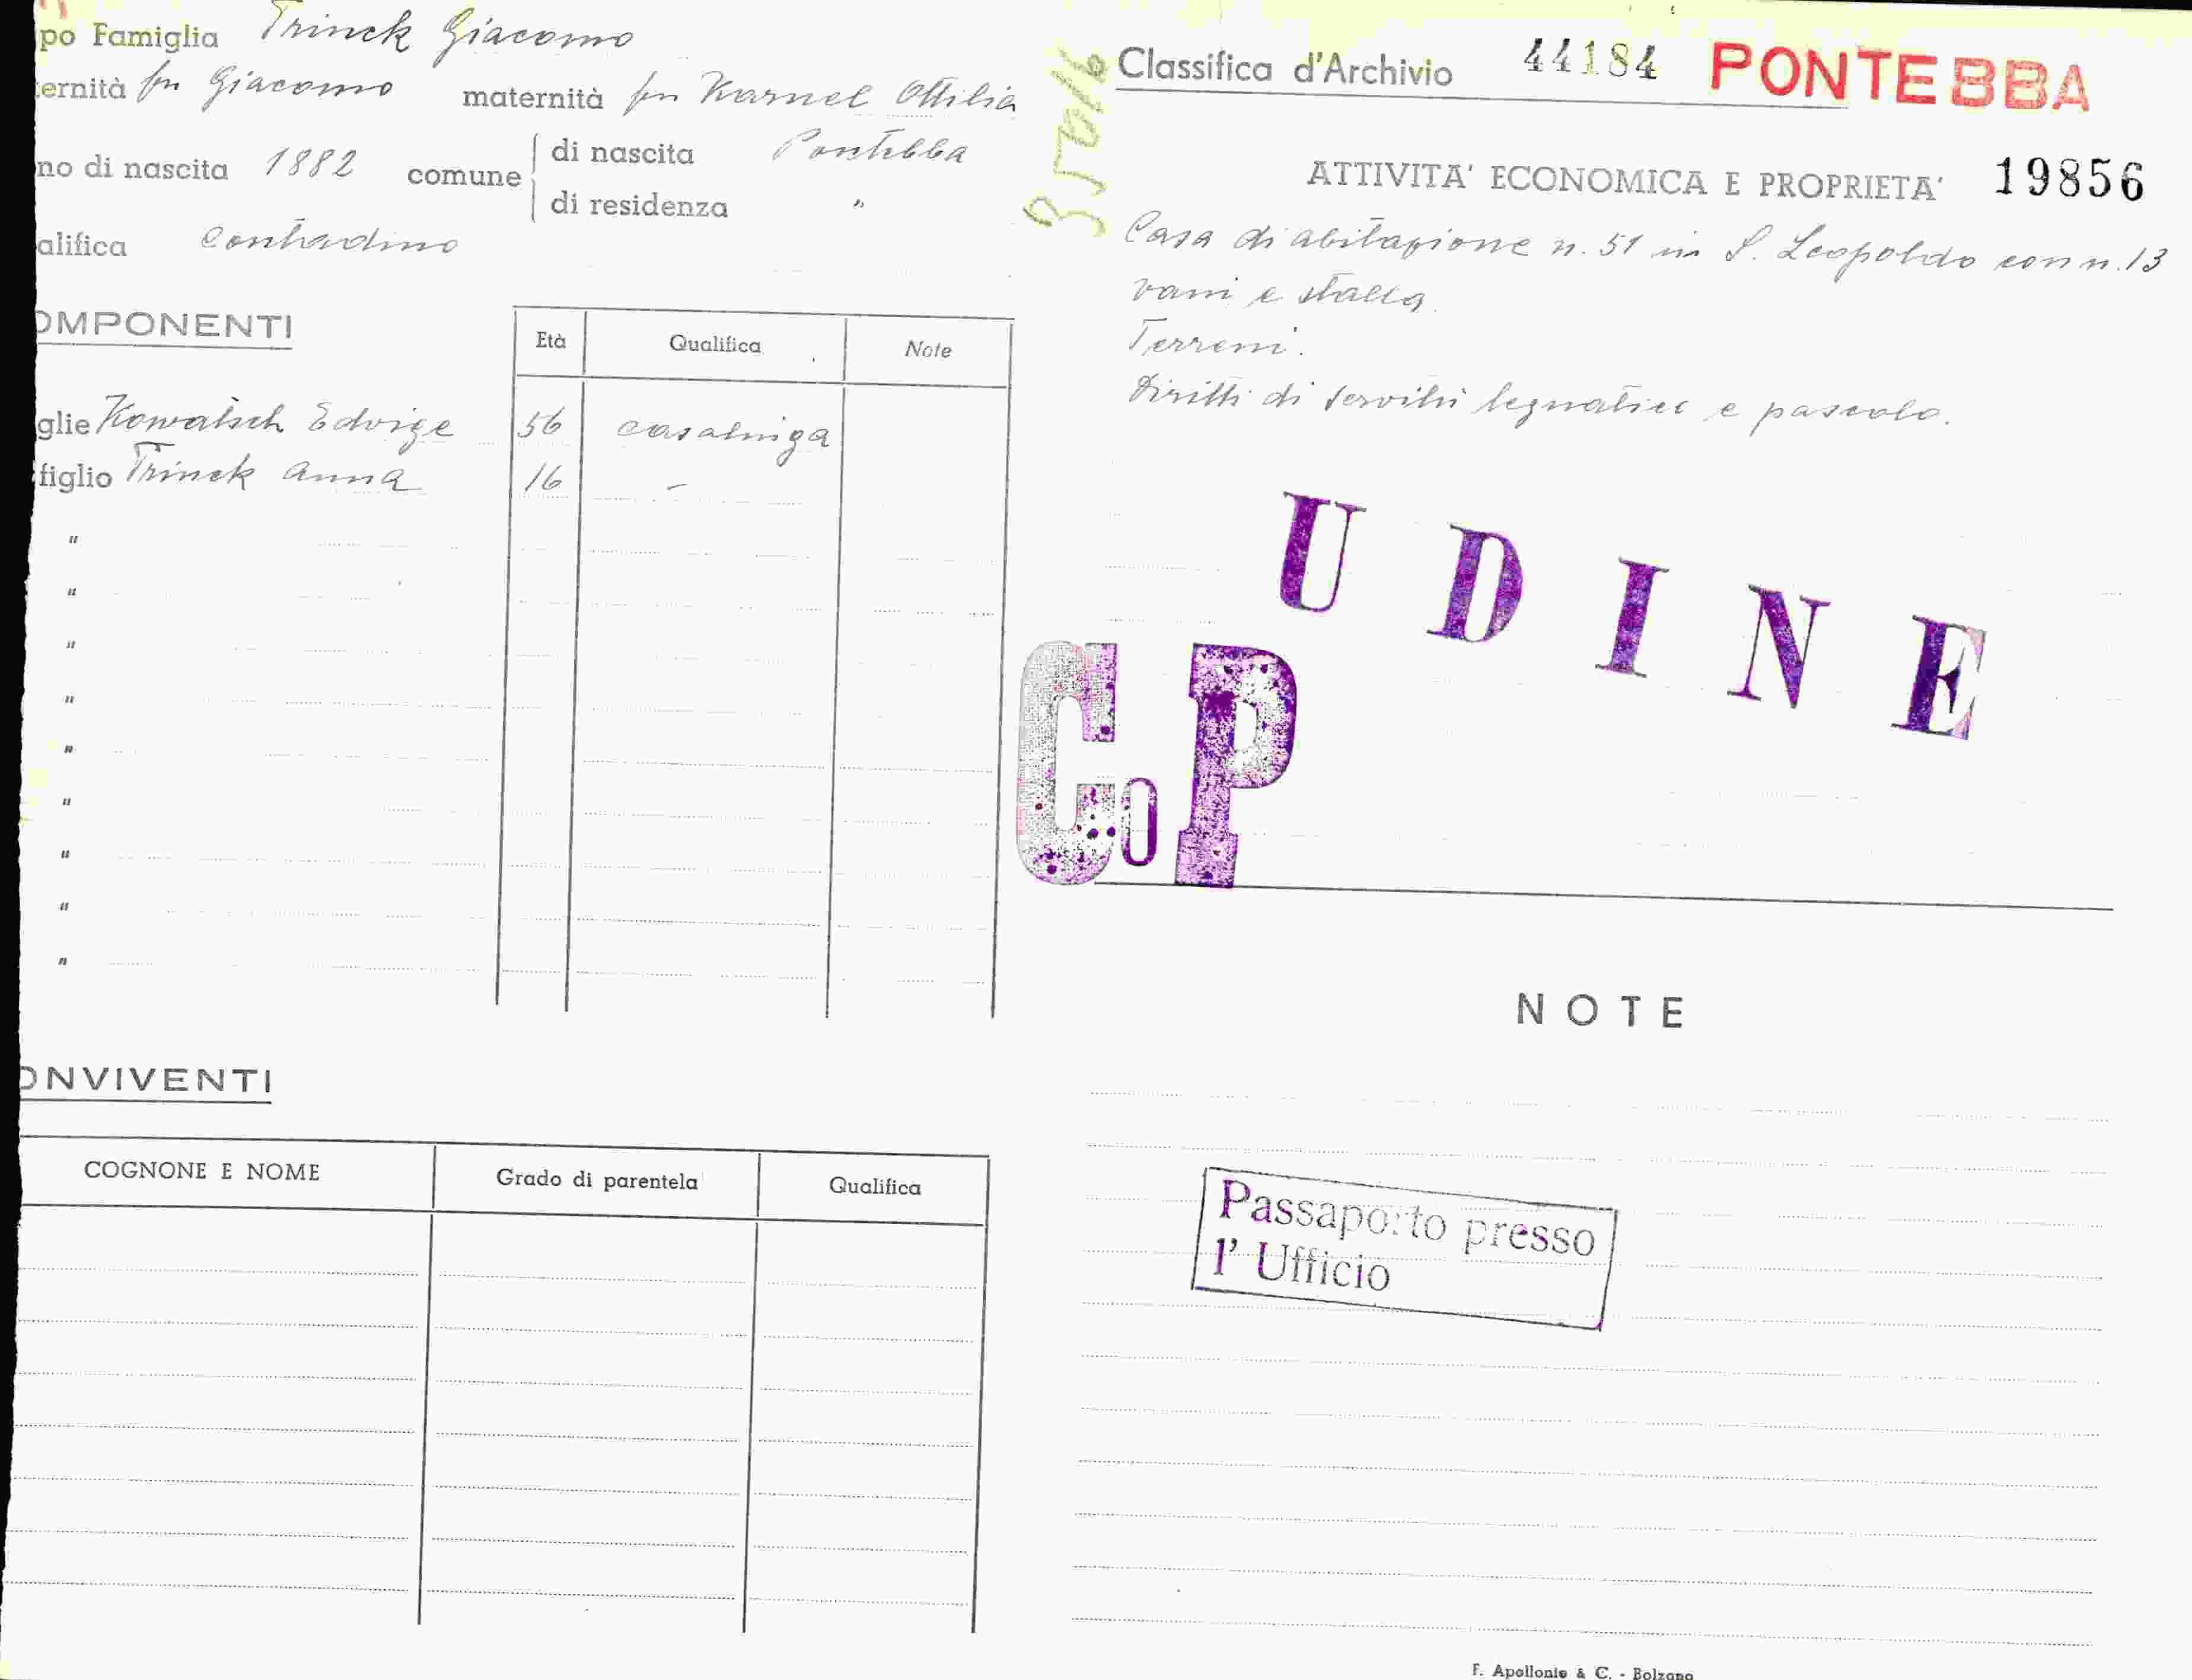 po Famiglia Trinck Giacomo
ernità fu Giacomo maternità fu Karnel Ottilia
no di nascita 1882 comune di nascita Pontebba
di residenza "
alifica contadino
OMPONENTI
Età Qualifica Note
glie Kowatsch Edvige 56 casalinga
figlio Trinck Anna 16 -
"
"
"
"
"
"
"
"
"
ONVIVENTI
COGNONE E NOME Grado di parentela Qualifica
Classifica d'Archivio 44184 PONTEBBA
ATTIVITA' ECONOMICA E PROPRIETA' 19856
Casa di abitazione n. 51 in S. Leopoldo con n. 13
vani e stalla.
Terreni.
Diritti di servitù legnatico e pascolo.
UDINE
CoP
NOTE
Passaporto presso
l' Ufficio
F. Apollonio & C. - Bolzano